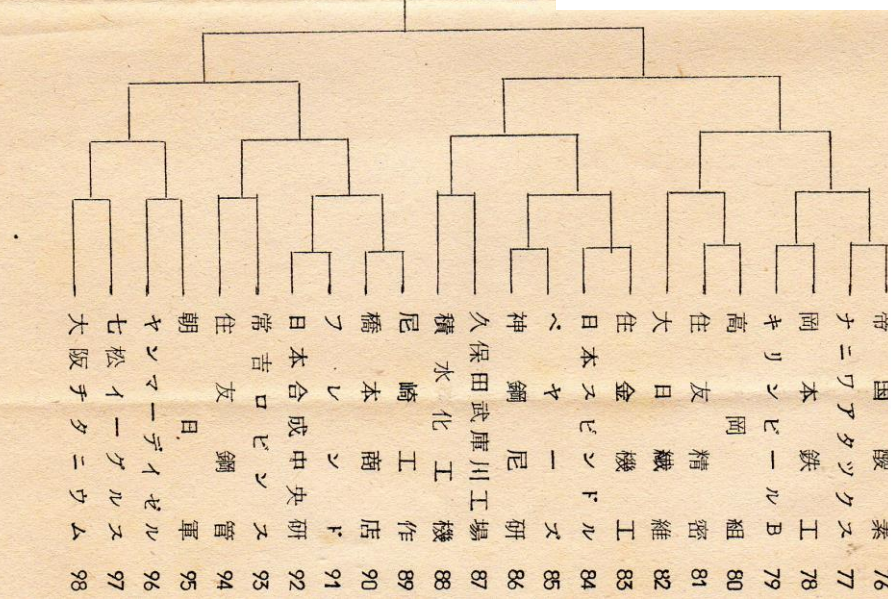 帝国酸素 76
ナニワアタックス 77
岡本鉄工 78
キリンビールB 79
高岡組 80
住友精密 81
大日繊維 82
住金機工 83
日本スピンドル 84
ベヤーズ 85
神鋼尼研 86
久保田武庫川工場 87
積水化工機 88
尼崎工作 89
橋本商店 90
フレンド 91
日本合成中央研 92
常吉ロビンス 93
住友鋼管 94
朝日軍 95
ヤンマーディゼル 96
七松イーグルス 97
大阪チタニウム 98